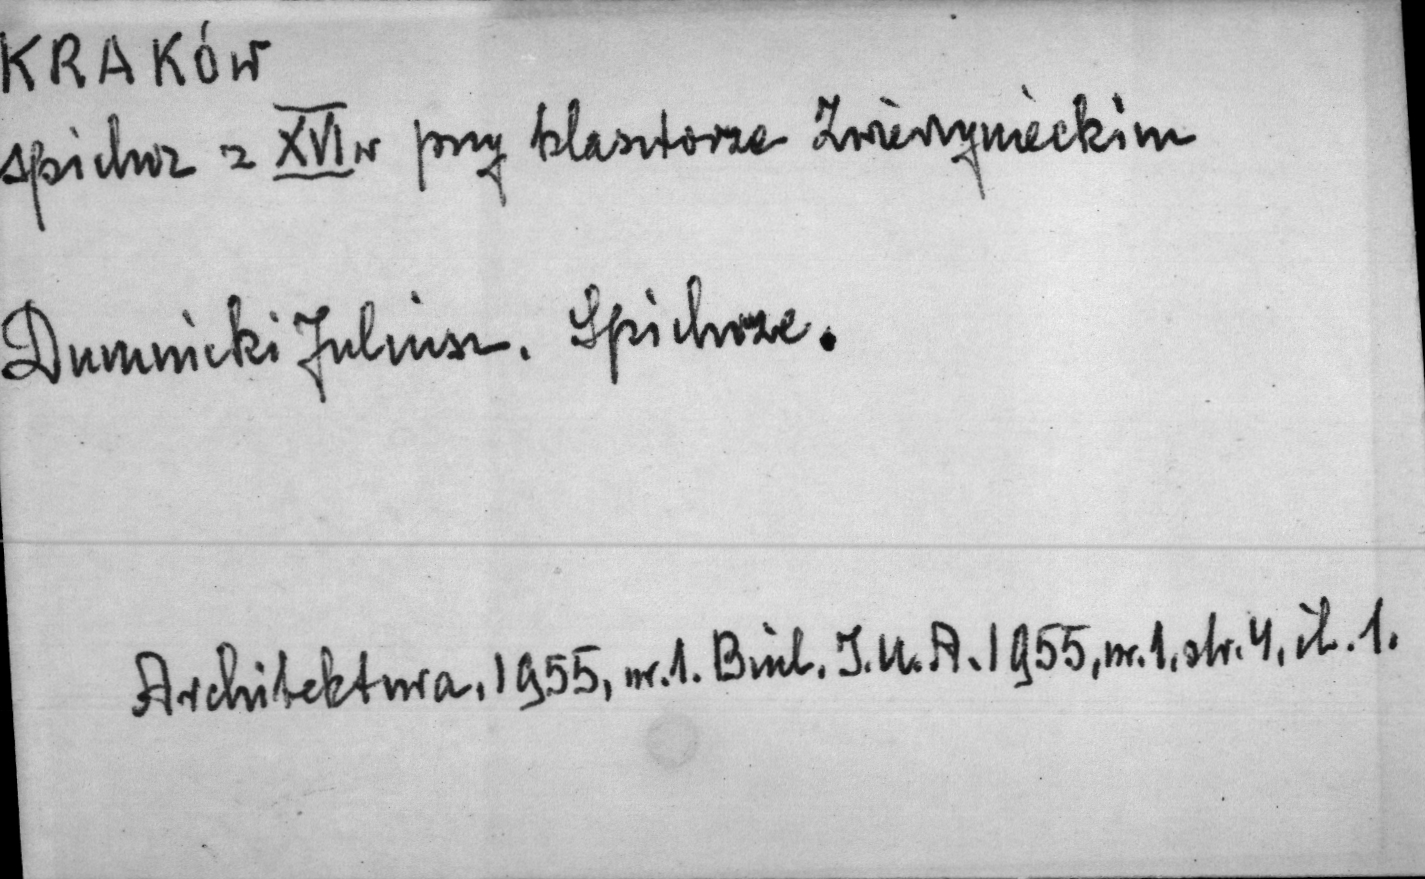 KRAKÓW
spichrz z XVI w przy klasztorze Zwierzynieckim
Dumnicki Juliusz. Spichrze.
Architektura, 1955, nr. 1. Biul. I.U.A. 1955, nr. 1, str. 4, il. 1.